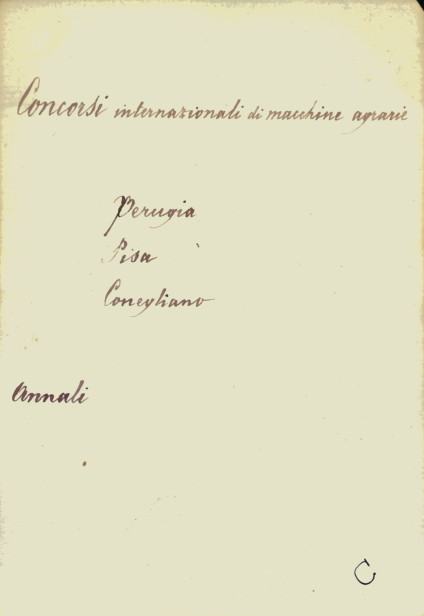 Concorsi internazionali di macchine agrarie
Perugia
Pisa
Conegliano
Annali
C